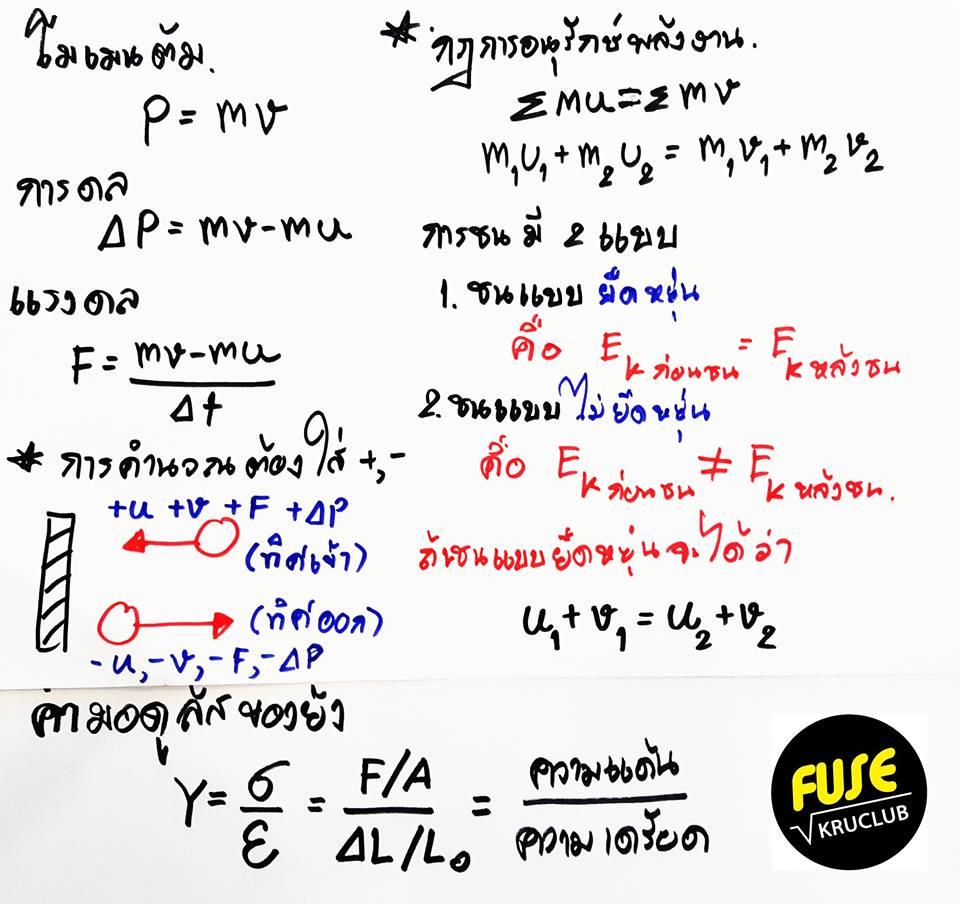 โมเมนตัม.
P = mv
การดล
ΔP = mv - mu
แรงดล
F = (mv - mu) / Δt
* การคำนวณต้องใส่ +,-
+u +v +F +ΔP
(ทิศเข้า)
(ทิศออก)
-u, -v, -F, -ΔP
* กฎการอนุรักษ์พลังงาน.
Σmu = Σmv
m₁u₁ + m₂u₂ = m₁v₁ + m₂v₂
การชนมี 2 แบบ
1. ชนแบบ ยืดหยุ่น
คือ Eₖ ก่อนชน = Eₖ หลังชน
2. ชนแบบ ไม่ยืดหยุ่น
คือ Eₖ ก่อนชน ≠ Eₖ หลังชน.
ถ้าชนแบบยืดหยุ่นจะได้ว่า
u₁ + v₁ = u₂ + v₂
ค่ามอดูลัสของยัง
Y = σ/ε = (F/A) / (ΔL/L₀) = ความเค้น / ความเครียด
FUSE
√KRUCLUB